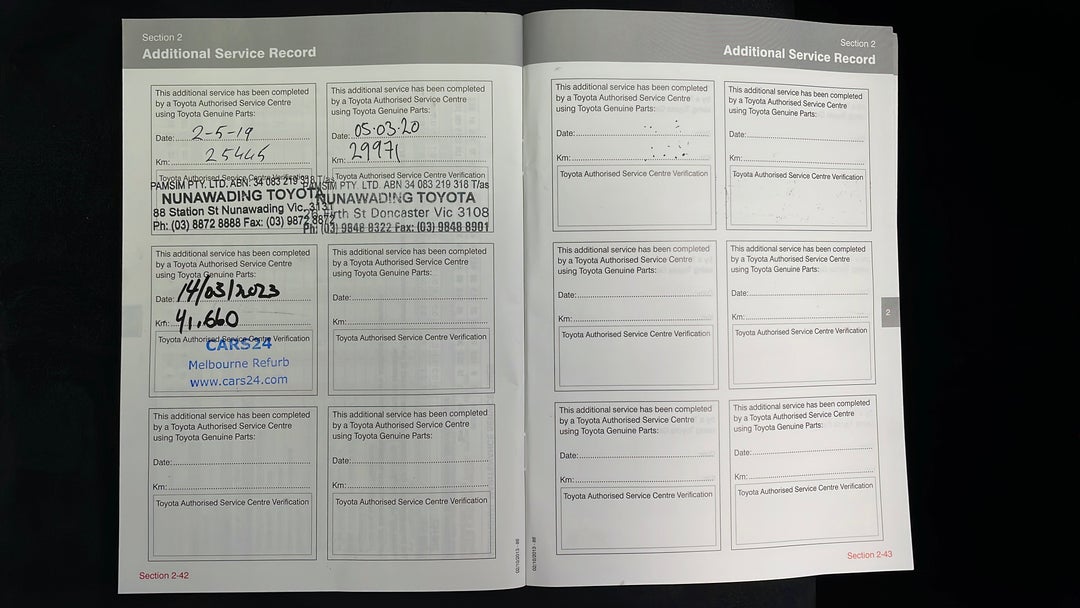 Section 2
Additional Service Record
This additional service has been completed
by a Toyota Authorised Service Centre
using Toyota Genuine Parts:
Date: 2-5-19
Km: 25445
Toyota Authorised Service Centre Verification
PAMSIM PTY. LTD. ABN: 34 083 219 318 T/as
NUNAWADING TOYOTA
88 Station St Nunawading Vic. 3131
Ph: (03) 8872 8888 Fax: (03) 9872 8872
This additional service has been completed
by a Toyota Authorised Service Centre
using Toyota Genuine Parts:
Date: 05.03.20
Km: 29971
Toyota Authorised Service Centre Verification
PAMSIM PTY. LTD. ABN 34 083 219 318 T/as
NUNAWADING TOYOTA
St Doncaster Vic 3108
Ph: (03) 9848 8322 Fax: (03) 9848 8901
This additional service has been completed
by a Toyota Authorised Service Centre
using Toyota Genuine Parts:
Date: 14/03/2023
Km: 41,660
Toyota Authorised Service Centre Verification
CARS24
Melbourne Refurb
www.cars24.com
This additional service has been completed
by a Toyota Authorised Service Centre
using Toyota Genuine Parts:
Date:
Km:
Toyota Authorised Service Centre Verification
This additional service has been completed
by a Toyota Authorised Service Centre
using Toyota Genuine Parts:
Date:
Km:
Toyota Authorised Service Centre Verification
This additional service has been completed
by a Toyota Authorised Service Centre
using Toyota Genuine Parts:
Date:
Km:
Toyota Authorised Service Centre Verification
Section 2-42
Section 2
Additional Service Record
This additional service has been completed
by a Toyota Authorised Service Centre
using Toyota Genuine Parts:
Date:
Km:
Toyota Authorised Service Centre Verification
This additional service has been completed
by a Toyota Authorised Service Centre
using Toyota Genuine Parts:
Date:
Km:
Toyota Authorised Service Centre Verification
This additional service has been completed
by a Toyota Authorised Service Centre
using Toyota Genuine Parts:
Date:
Km:
Toyota Authorised Service Centre Verification
This additional service has been completed
by a Toyota Authorised Service Centre
using Toyota Genuine Parts:
Date:
Km:
Toyota Authorised Service Centre Verification
2
This additional service has been completed
by a Toyota Authorised Service Centre
using Toyota Genuine Parts:
Date:
Km:
Toyota Authorised Service Centre Verification
This additional service has been completed
by a Toyota Authorised Service Centre
using Toyota Genuine Parts:
Date:
Km:
Toyota Authorised Service Centre Verification
Section 2-43